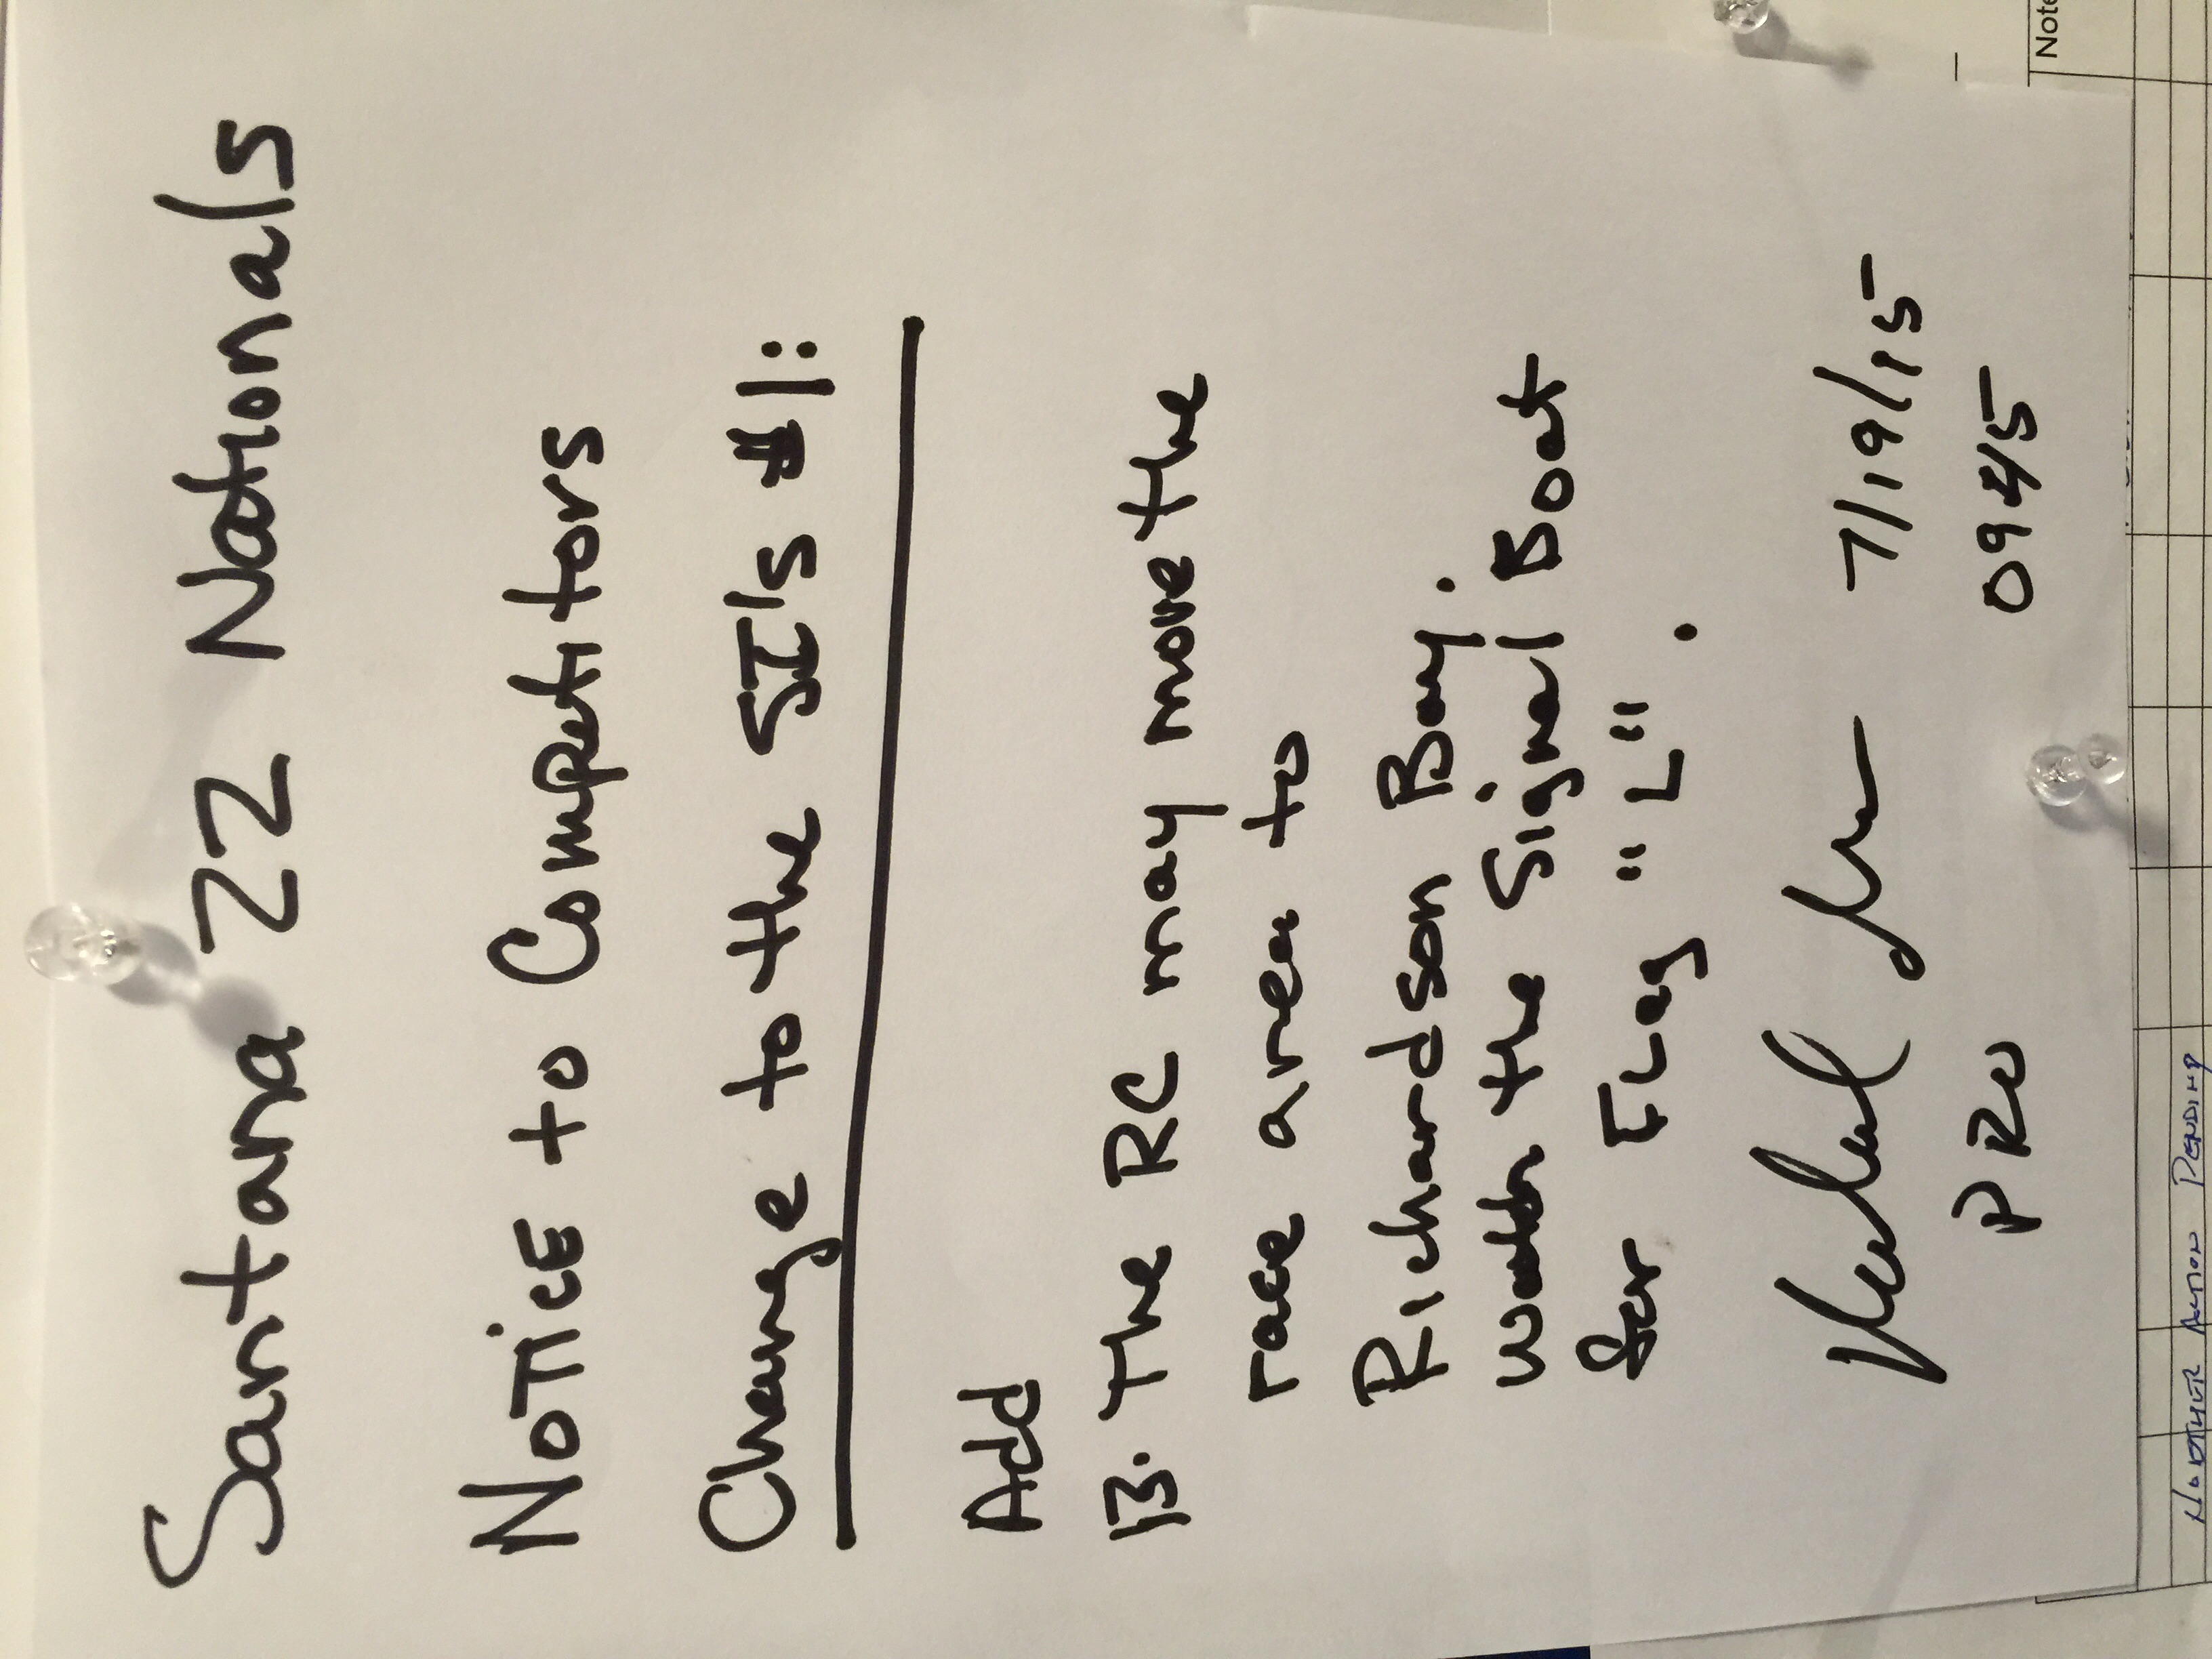 Santana 22 Nationals
Notice to Competitors
Change to the SI's #1:
Add
13. The RC may move the
race area to
Richardson Bay.
Watch the Signal Boat
for Flag "L".
7/19/15
PRO 0945
Note
No other Action Pending